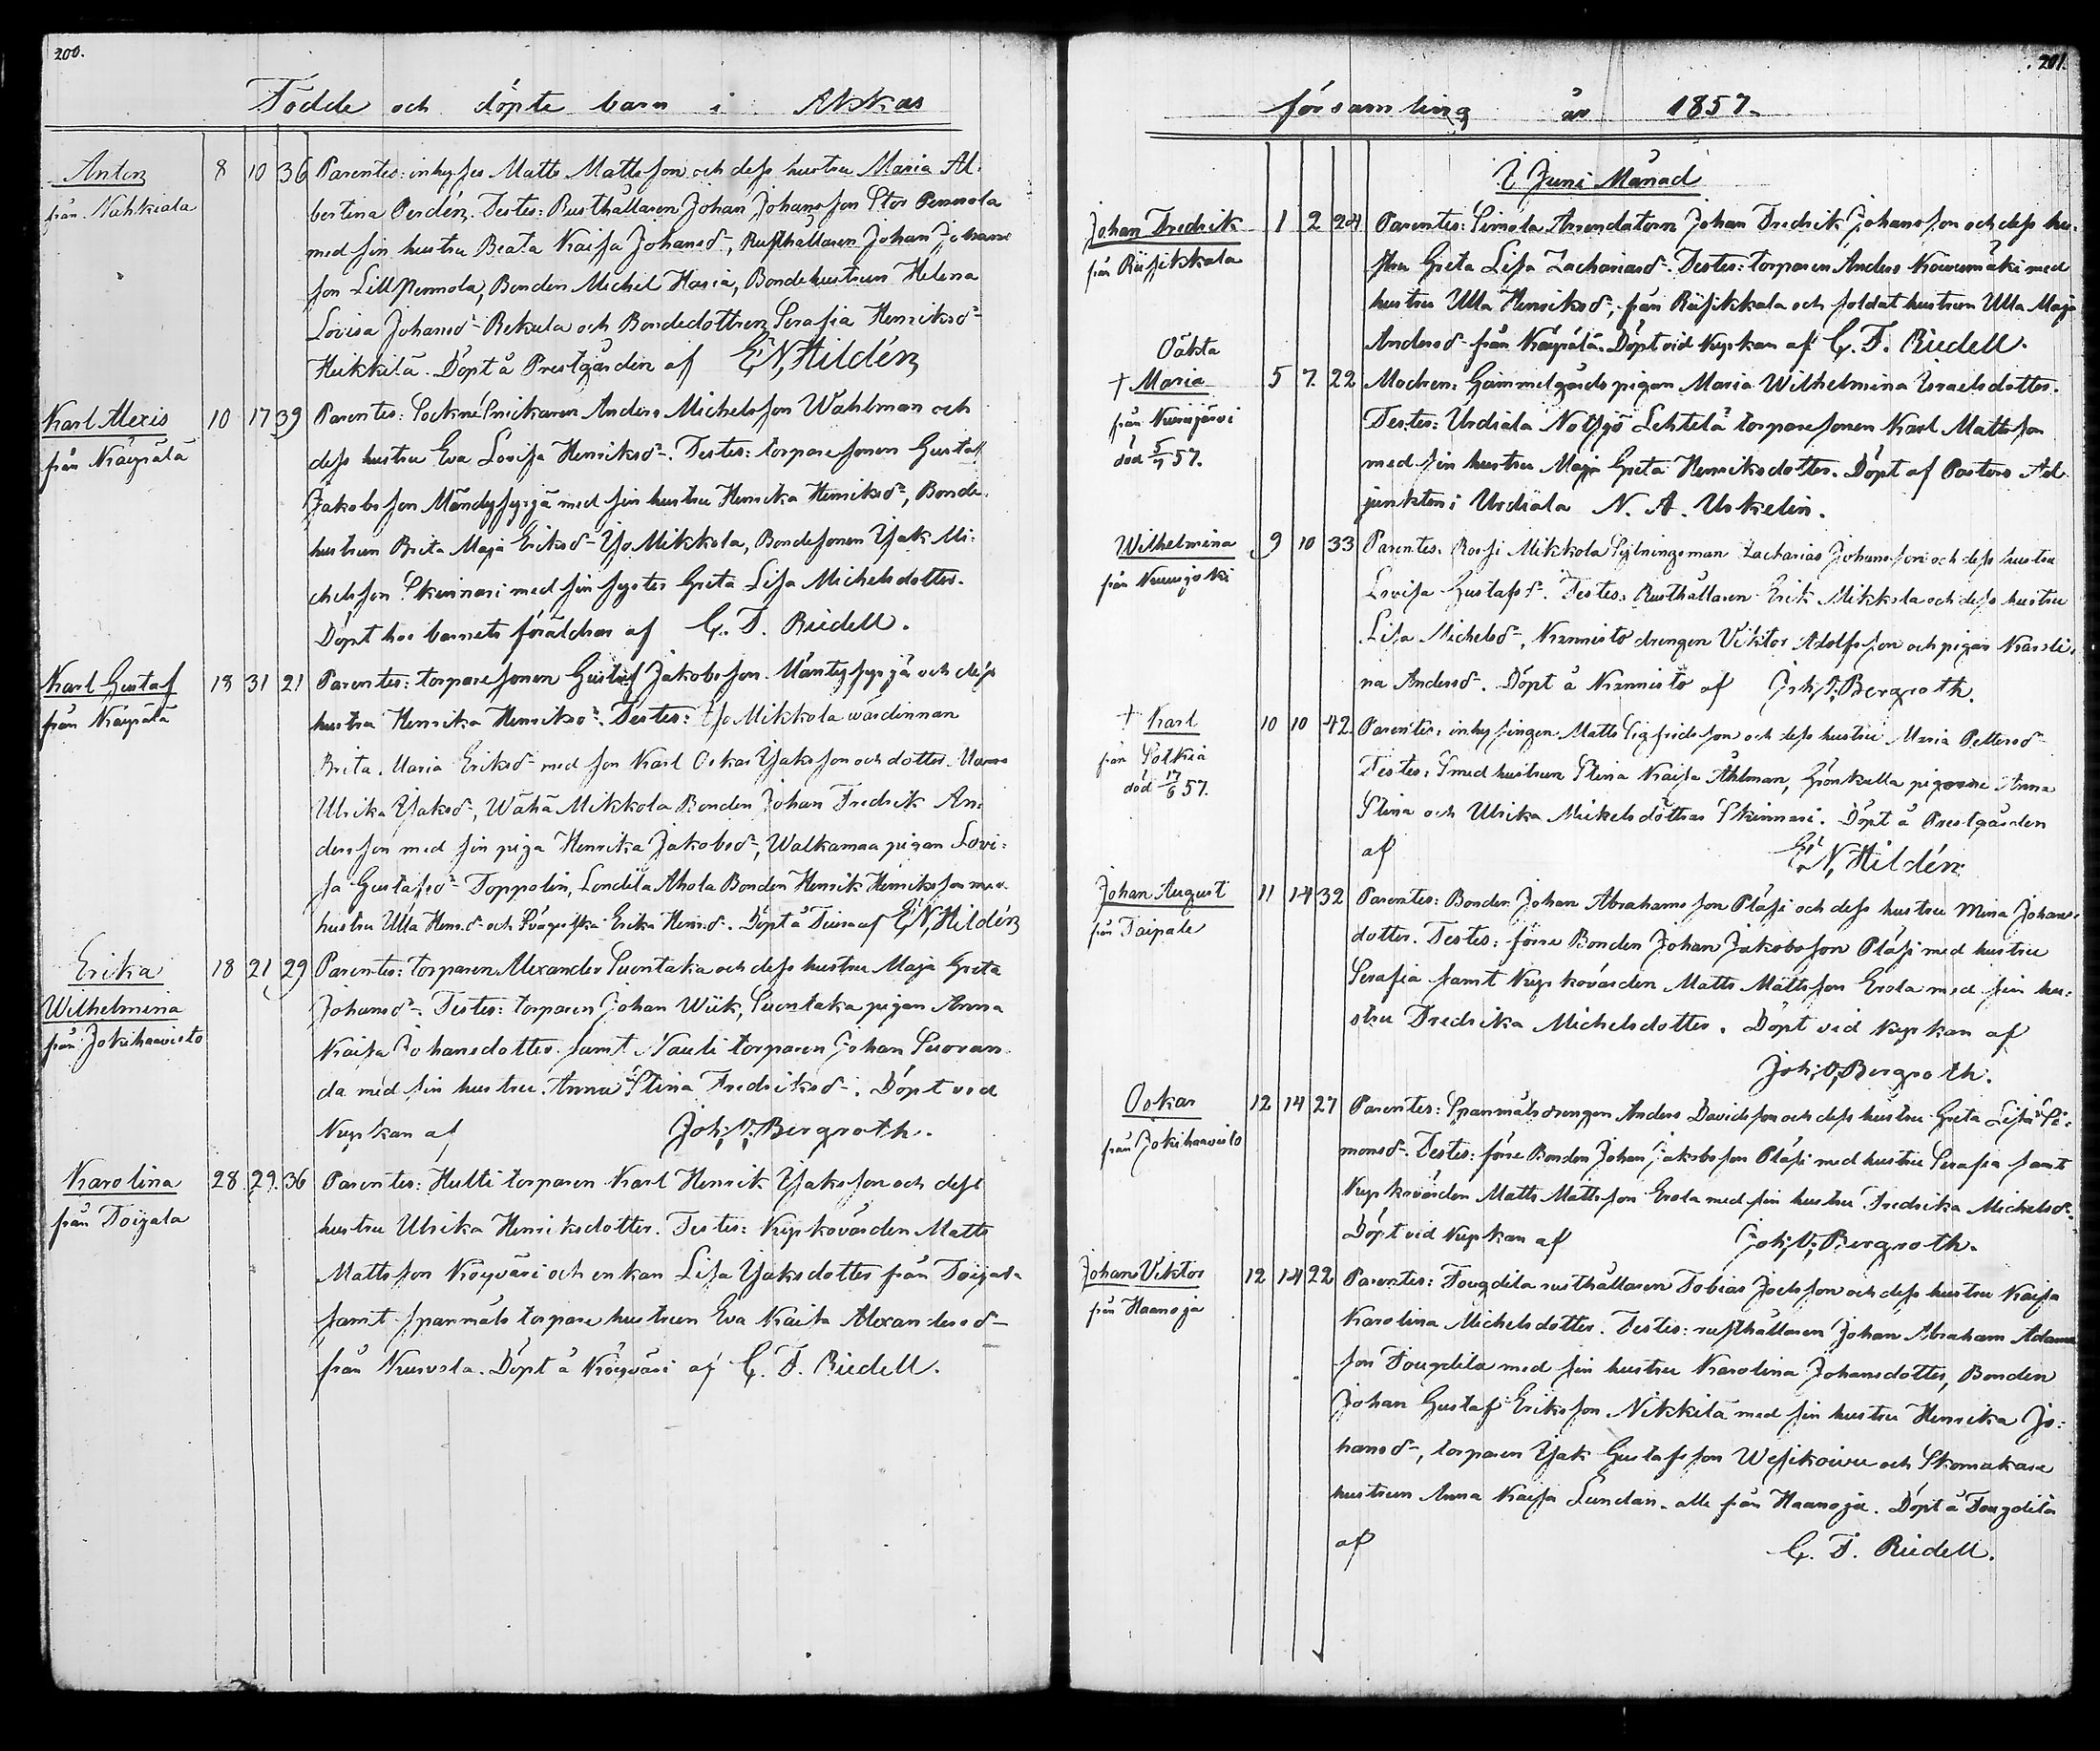 200.
Födde och döpte barn i Akkas
Anton 8 10 36 Parentes: inhyses Matts Mattsson och dess hustru Maria Al-
från Nahkiala bertina Perdén. Testes: Rusthållaren Johan Johansson Stor Pennola
med sin hustru Beata Kaisa Johansd-, Rusthållaren Johan Johans-
son Lill Pennola, Bonden Michel Haria, Bondehustrun Helena
Lovisa Johansd- Rekula och Bondedottren Serafia Henriksd-
Heikkilä. Döpt å Prestgården af E. N. Hildén
Karl Alexis 10 17 39 Parentes: Sockne Snickaren Anders Michelsson Wahlman och
från Kägälä dess hustru Eva Lovisa Henriksd-. Testes: torparesonen Gustaf
Jakobsson Mäntysyrjä med sin hustru Henrika Henriksd-, Bonde-
hustrun Brita Maja Eriksd- Yso Mikkola, Bondesonen Isak Mi-
chelsson Skinnari med sin syster Greta Lisa Michelsdotter.
Döpt hos barnets föräldrar af C. F. Riedell.
Karl Gustaf 18 31 21 Parentes: torparesonen Gustaf Jakobsson Mäntysyrjä och dess
från Kägälä hustru Henrika Henriksd-. Testes: Iso Mikkola värdinnan
Brita Maria Eriksd- med son Karl Oskar Isaksson och dotter
Ulrika Isaksd-, Wähä Mikkola Bonden Johan Fredrik An-
dersson med sin piga Henrika Jakobsd-, Walkamaa pigan Lovi-
sa Gustafsd- Toppolin, Londila Ahola Bonden Henrik Henriksson med
hustru Ulla Henrd- och Erika Henrd-. Döpt å af E. N. Hildén
Erika 18 21 29 Parentes: torparen Alexander Suontaka och dess hustru Maja Greta
Wilhelmina Johansd-. Testes: torparen Johan Wiik, Suontaka pigan Anna
från Jokihaavisto Kaisa Johansdotter samt Nauli torparen Johan Suoran-
da med sin hustru Anna Stina Fredriksd-. Döpt vid
Kyrkan af Joh. V. Bergroth.
Karolina 28 29 36 Parentes: Hulti torparen Karl Henrik Isaksson och dess
från Toijala hustru Ulrika Henriksdotter. Testes: Kyrkovärden Matts
Mattsson Köyväri och enkan Lisa Isaksdotter från Toijala
samt spanmåls torpare hustrun Eva Kaisa Alexandersd-
från Kurvola. Döpt å Köyväri af C. F. Riedell.
201.
församling år 1857.
I Juni Månad
Johan Fredrik 1 2 24 Parentes: Simola Arrendatorn Johan Fredrik Johansson och dess hu-
från Riisikkala stru Greta Lisa Zachariasd-. Testes: torparen Anders med
hustru Ulla Henriksd-, från Riisikkala och soldat hustrun Ulla Maja
Andersd- från Kägälä. Döpt vid Kyrkan af C. F. Riedell.
Oäkta
† Maria 5 7 22 Modren: Gammelgårds pigan Maria Wilhelmina Israelsdotter.
från Kurisjärvi Testes: Urdiala Notsjö Lehtelä torparesonen Karl Mattsson
död 5/7 57. med sin hustru Maja Greta Henriksdotter. Döpt af Pastors Ad-
junkten i Urdiala N. A. Urkelin.
Wilhelmina 9 10 33 Parentes: Rossi Mikkola Sytningsman Zacharias Johansson och dess hustru
från Kurisjoki Lovisa Gustafsd-. Testes: Rusthållaren Erik Mikkola och dess hustru
Lisa Michelsd-, Kranisto drengen Viktor Adolfsson och pigan Karoli-
na Andersd-. Döpt å Kranisto af Joh. V. Bergroth.
† Karl 10 10 42 Parentes: inhysingen Matts Sigfridsson och dess hustru Maria Pettersd-
från Sotkia Testes: Smed hustrun Stina Kaisa Åhlman, pigorne Anna
död 17/6 57. Stina och Ulrika Mikelsdöttrar Skinnari. Döpt å Prestgården
af E. N. Hildén
Johan August 11 14 32 Parentes: Bonden Johan Abrahamsson Pläsi och dess hustru Mina Johans-
från Taipale dotter. Testes: förre Bonden Johan Jakobsson Pläsi med hustru
Serafia samt Kyrkovärden Matts Mattsson Erola med sin hu-
stru Fredrika Michelsdotter. Döpt vid Kyrkan af
Joh. V. Bergroth.
Oskar 12 14 27 Parentes: Spanmålsdrengen Anders Davidsson och dess hustru Greta Lisa Si-
från Jokihaavisto monsd-. Testes: förre Bonden Johan Jakobsson Pläsi med hustru Serafia samt
Kyrkovärden Matts Mattsson Erola med sin hustru Fredrika Michelsd-.
Döpt vid Kyrkan af Joh. V. Bergroth.
Johan Viktor 12 14 22 Parentes: Tougdila rusthållaren Tobias Joelsson och dess hustru Kaisa
från Haanoja Karolina Michelsdotter. Testes: rusthållaren Johan Abraham Adams-
son Tougdila med sin hustru Karolina Johansdotter, Bonden
Johan Gustaf Eriksson Nikkilä med sin hustru Henrika Jo-
hansd-, torparen Isak Gustafsson Wesikoivu och Skomakare
hustrun Anna Kaisa Lundán, alle från Haanoja. Döpt å Tougdila
af C. F. Riedell.